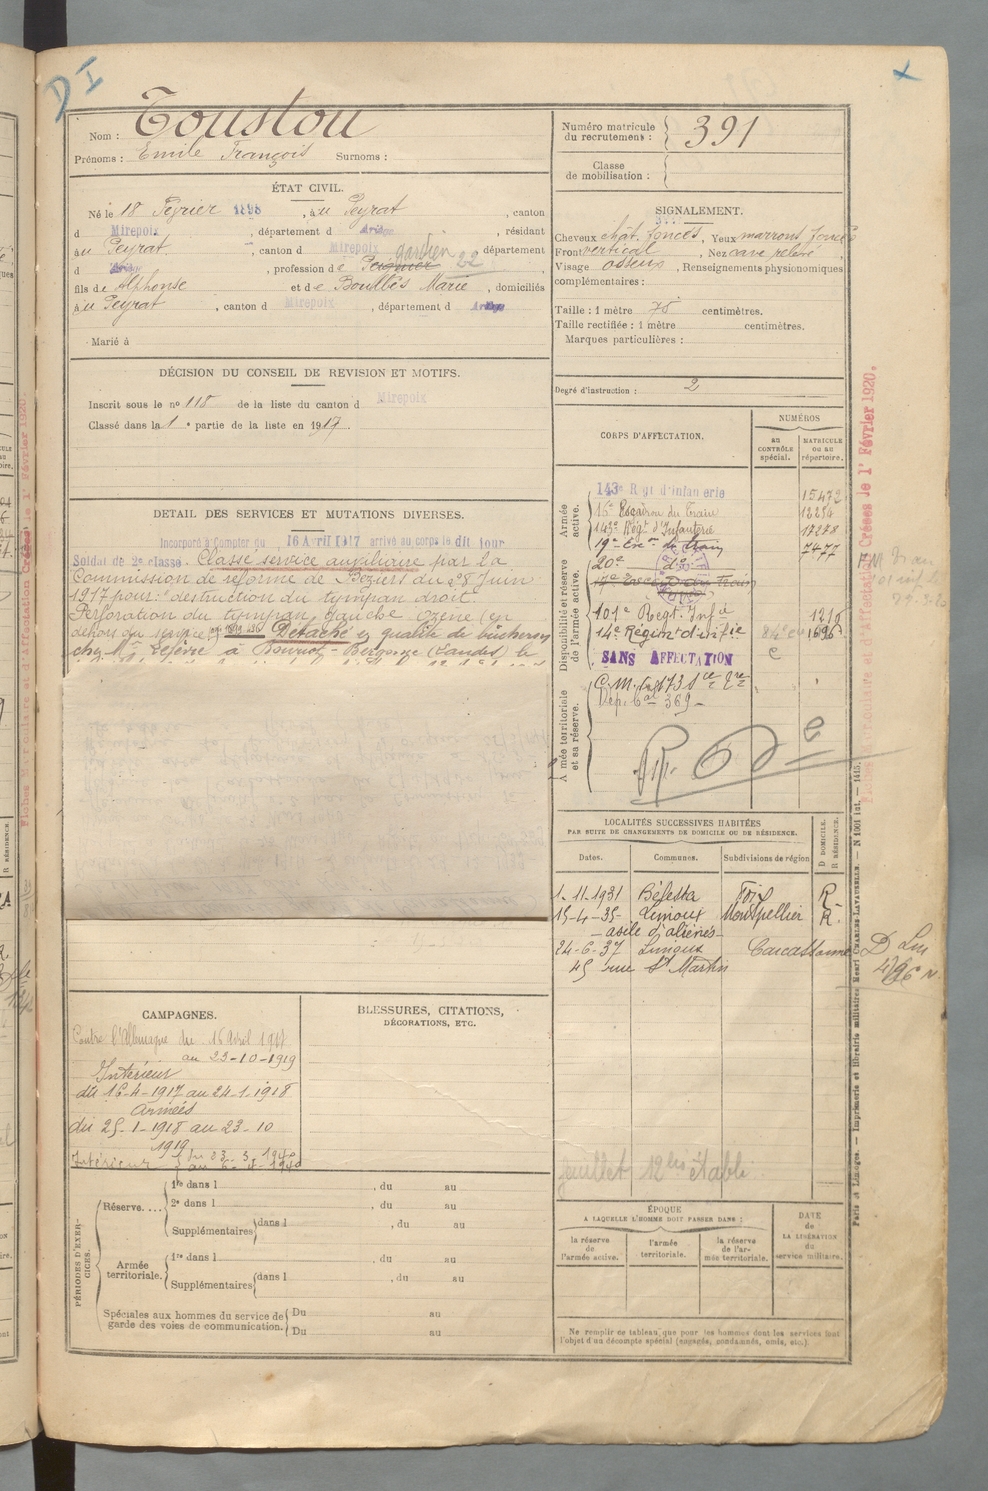 D I
Nom : Toustou
Prénoms : Emile François Surnoms :
Numéro matricule du recrutement : 391
Classe de mobilisation :
ÉTAT CIVIL.
Né le 18 Février 1898, à u Peyrat, canton
d Mirepoix, département d Ariège, résidant
à u Peyrat, canton d Mirepoix département
d Ariège, profession de Peignier gardien 22
fils de Alphonse et de Boullès Marie, domiciliés
à u Peyrat, canton d Mirepoix, département d Ariège
Marié à
SIGNALEMENT.
Cheveux chât. foncés, Yeux marrons foncés
Front vertical, Nez cave relevé
Visage osseux, Renseignements physionomiques
complémentaires :
Taille : 1 mètre 75 centimètres.
Taille rectifiée : 1 mètre centimètres.
Marques particulières :
Degré d'instruction : 2
DÉCISION DU CONSEIL DE REVISION ET MOTIFS.
Inscrit sous le nº 118 de la liste du canton d Mirepoix
Classé dans la 1e partie de la liste en 1917.
DETAIL DES SERVICES ET MUTATIONS DIVERSES.
Incorporé à compter du 16 Avril 1917 arrivé au corps le dit jour
Soldat de 2e classe. Classé service auxiliaire par la
Commission de réforme de Béziers du 28 Juin
1917 pour : destruction du tympan droit.
Perforation du tympan gauche Ozène (en
dehors du service) Détaché en qualité de bûcheron
chez Mr Lefèvre à Bourriot-Bergonce (Landes) le
CORPS D'AFFECTATION.
NUMÉROS
au CONTRÔLE spécial.
MATRICULE ou au répertoire.
Armée active.
143e Rgt d'Infanterie 15472
16e Escadron du Train 12254
143e Régt d'Infanterie 17278
19e Esc.on de train 7477
20e do
Disponibilité et réserve de l'armée active.
101e Regt. Infie 1210
14e Régim. d'infie 1696
SANS AFFECTATION
Armée territoriale et sa réserve.
LOCALITÉS SUCCESSIVES HABITÉES
PAR SUITE DE CHANGEMENTS DE DOMICILE OU DE RÉSIDENCE.
Dates. Communes. Subdivisions de région
D DOMICILE.
R RÉSIDENCE.
1-11-1931 Bélesta Foix R.
15-4-35 Limoux Montpellier R.
- asile d'aliénés -
24-6-37 Limoux Carcassonne D
45 rue St Martin
feuillet 12 bis établi
CAMPAGNES.
Contre l'Allemagne du 16 Avril 1917
au 23-10-1919
Intérieur
du 16-4-1917 au 24-1-1918
Armées
du 25-1-1918 au 23-10
1919
Intérieur du 23-3-1940
au 6-4-1940
BLESSURES, CITATIONS,
DÉCORATIONS, ETC.
PÉRIODES D'EXERCICES.
Réserve....
1re dans l , du au
2e dans l , du au
Supplémentaires dans l , du au
Armée territoriale.
1re dans l , du au
Supplémentaires dans l , du au
Spéciales aux hommes du service de garde des voies de communication.
Du au
Du au
ÉPOQUE
A LAQUELLE L'HOMME DOIT PASSER DANS :
la réserve de l'armée active.
l'armée territoriale.
la réserve de l'armée territoriale.
DATE de LA LIBÉRATION du service militaire.
Ne remplir ce tableau que pour les hommes dont les services font
l'objet d'un décompte spécial (engagés, condamnés, omis, etc.)
Fiches Matriculaire et d'Affectation Créées le 1er Février 1920.
Paris et Limoges. — Imprimerie et librairie militaires Henri CHARLES-LAVAUZELLE. — N 1001 int. — 1415.